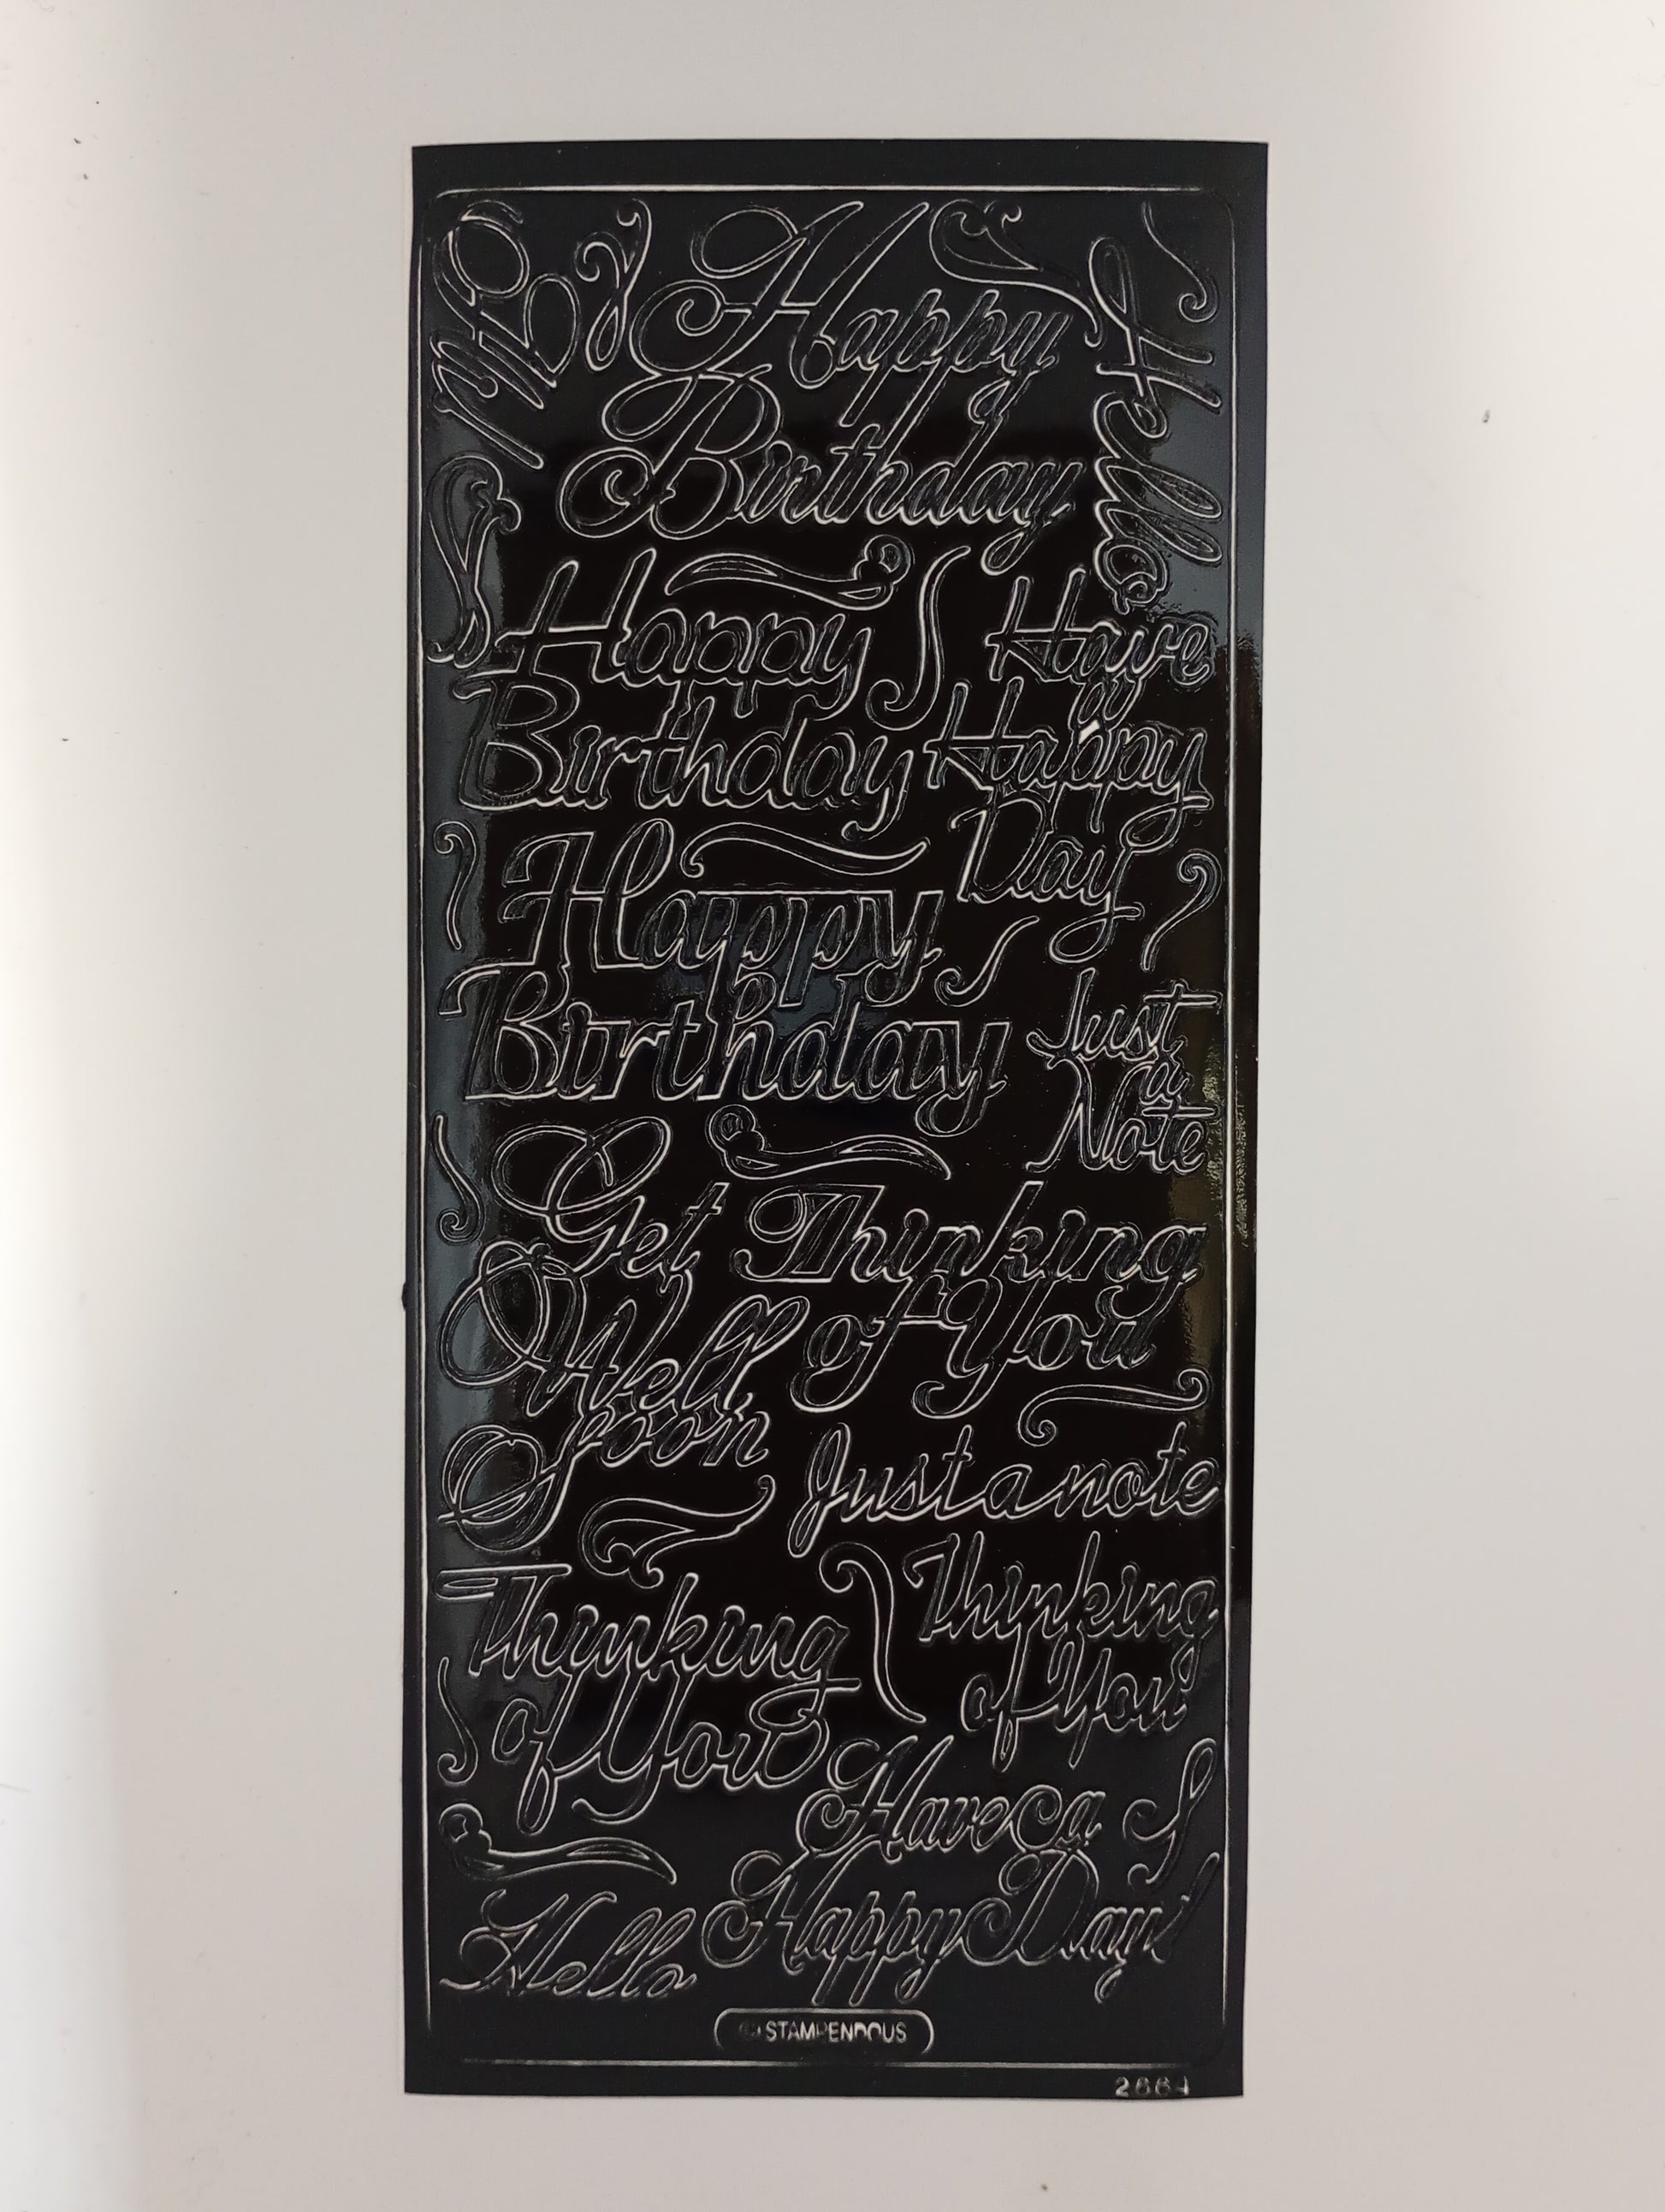 Hi
Happy
Birthday
Hello
Happy
Birthday
Have
a
Happy
Day
Happy
Birthday
Just
a
Note
Get
Well
Soon
Thinking
of You
Just a note
Thinking
of You
Thinking
of You
Have a
Happy Day!
Hello
© STAMPENDOUS
2664